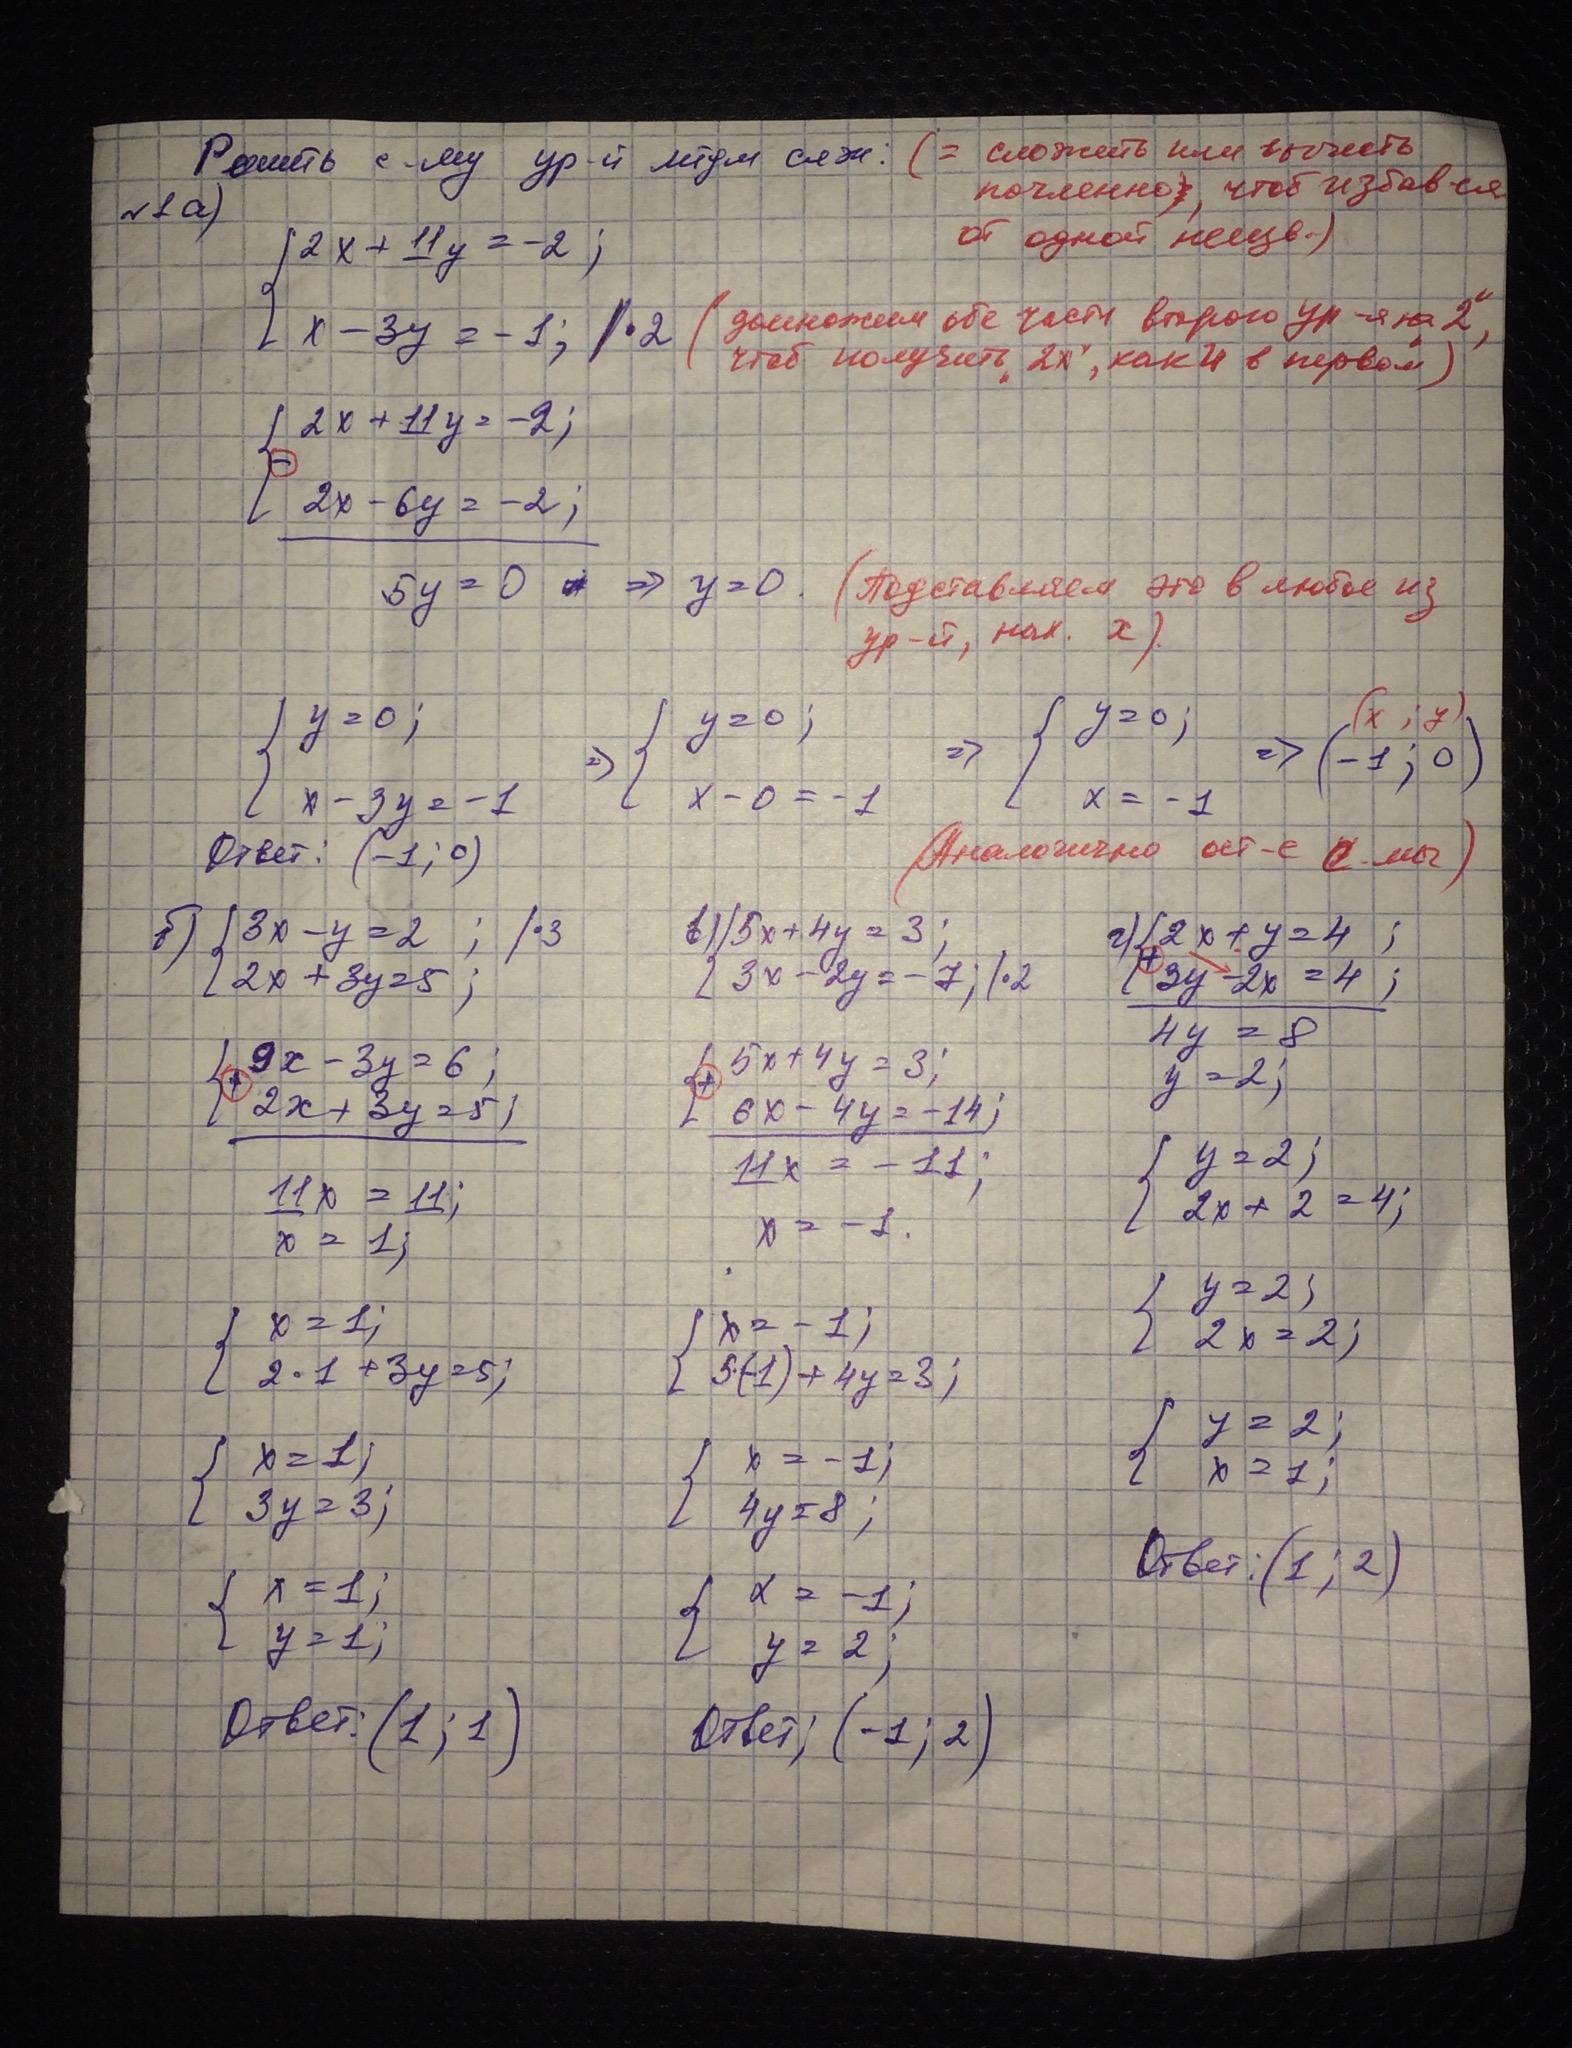 Решить с-му ур-й мтдм слж: (= сложить или вычесть
почленно, чтоб избав-ся
от одной неизв.)
№1 а)
{ 2x + 11y = -2;
x - 3y = -1; /·2 (домножим обе части второго ур-я на "2",
чтоб получить "2x", как и в первом)
{ 2x + 11y = -2;
-
2x - 6y = -2;
5y = 0 => y = 0. (Подставляем это в любое из
ур-й, нах. x).
{ y = 0; => { y = 0; => { y = 0; => (-1; 0) (x ; y)
x - 3y = -1 x - 0 = -1 x = -1
Ответ: (-1; 0) (Аналогично ост-е с-мы)
б) { 3x - y = 2 ; /·3
2x + 3y = 5;
{ 9x - 3y = 6;
+
2x + 3y = 5;
11x = 11;
x = 1;
{ x = 1;
2·1 + 3y = 5;
{ x = 1;
3y = 3;
{ x = 1;
y = 1;
Ответ: (1 ; 1)
в) { 5x + 4y = 3;
3x - 2y = -7; /·2
{ 5x + 4y = 3;
+
6x - 4y = -14;
11x = -11;
x = -1.
{ x = -1;
5(-1) + 4y = 3;
{ x = -1;
4y = 8;
{ x = -1;
y = 2;
Ответ; (-1; 2)
г) { 2x + y = 4 ;
+
3y - 2x = 4 ;
4y = 8
y = 2;
{ y = 2;
2x + 2 = 4;
{ y = 2;
2x = 2;
{ y = 2;
x = 1;
Ответ: (1 ; 2)